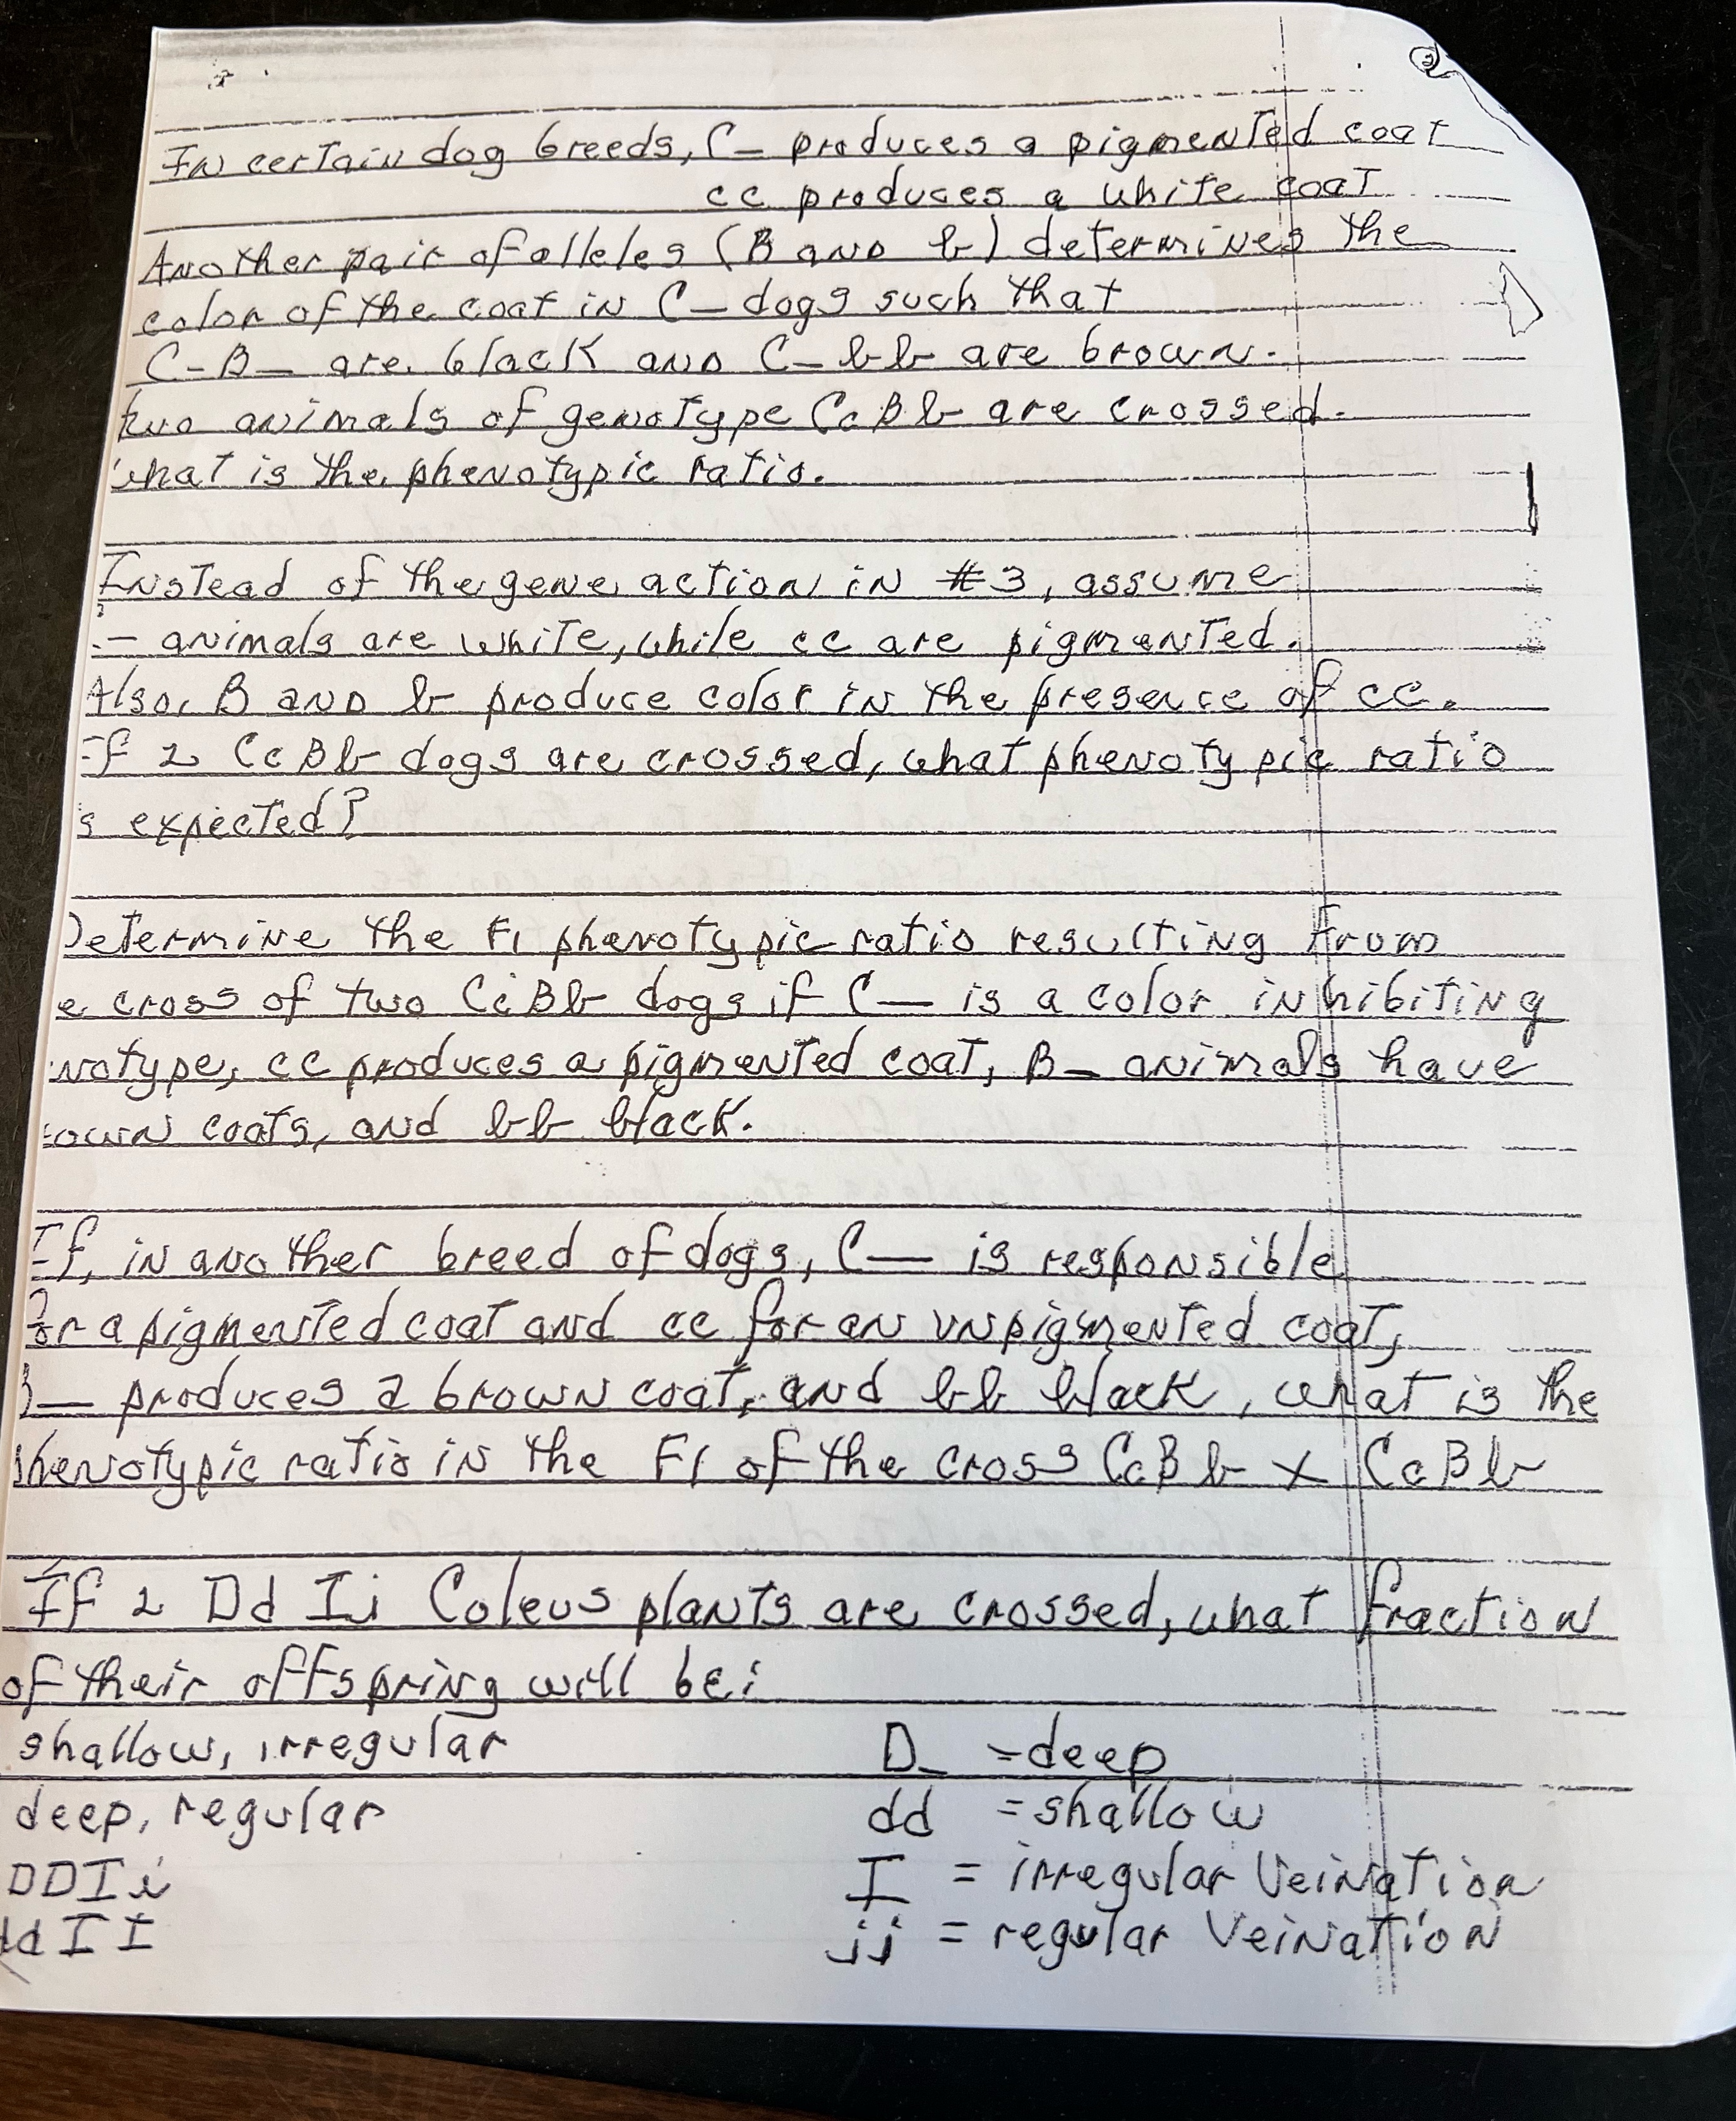 2
In certain dog breeds, C- produces a pigmented coat
cc produces a white coat
Another pair of alleles (B and b) determines the
color of the coat in C- dogs such that
C-B- are black and C-bb are brown.
two animals of genotype CcBb are crossed.
what is the phenotypic ratio.
Instead of the gene action in #3, assume
- animals are white, while cc are pigmented.
Also, B and b produce color in the presence of cc.
If 2 CcBb dogs are crossed, what phenotypic ratio
s expected?
Determine the F1 phenotypic ratio resulting from
e cross of two CcBb dogs if C- is a color inhibiting
notype, cc produces a pigmented coat, B- animals have
own coats, and bb black.
If, in another breed of dogs, C- is responsible
for a pigmented coat and cc for an unpigmented coat,
B- produces a brown coat, and bb black, what is the
phenotypic ratio in the F1 of the cross CcBb x CcBb
If 2 Dd Ii Coleus plants are crossed, what fraction
of their offspring will be:
shallow, irregular D- = deep
deep, regular dd = shallow
DDIi I = irregular Veination
ddII ii = regular Veination